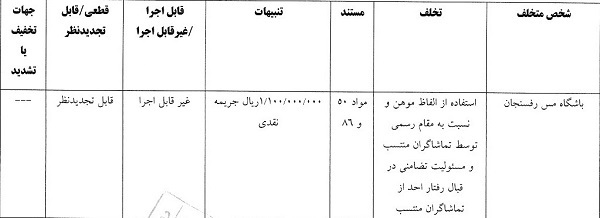 شخص متخلف
تخلف
مستند
تنبیهات
قابل اجرا
/غیرقابل اجرا
قطعی/قابل
تجدیدنظر
جهات
تخفیف
یا
تشدید
باشگاه مس رفسنجان
استفاده از الفاظ موهن و
نسبت به مقام رسمی
توسط تماشاگران منتسب
و مسئولیت تضامنی در
قبال رفتار احد از
تماشاگران منتسب
مواد ۵۰
و ۸۶
۱/۱۰۰/۰۰۰/۰۰۰ریال جریمه
نقدی
غیر قابل اجرا
قابل تجدیدنظر
---